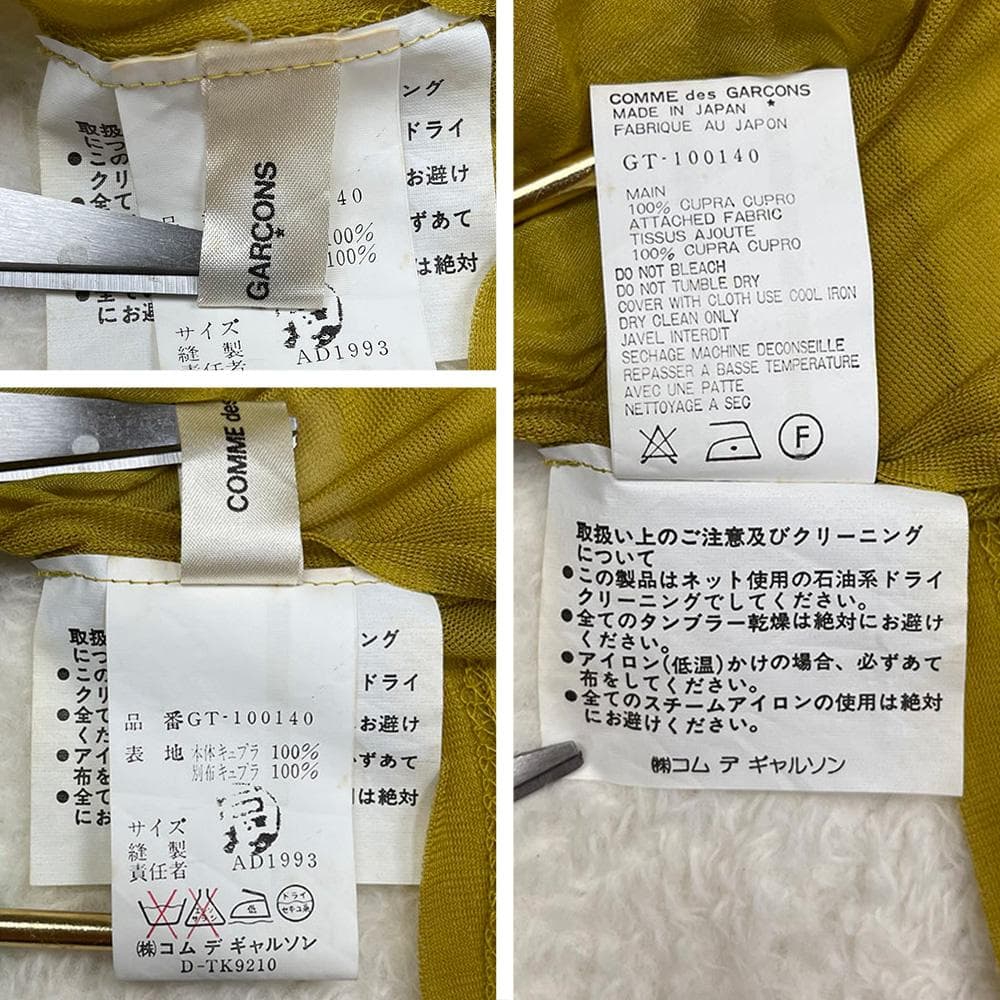 ング
取扱
ドライ
につ
●この
お避け
クリ
40
●全て
ずあて
100%
100%
は絶対
GARÇONS
●全て
にお避
サイズ
縫製
AD1993
責任者
COMME des
取扱
ング
につ
●この
ドライ
クリ
●全て
お避け
くだ
●アイ
ずあて
布を
●全て
は絶対
にお
品 番GT-100140
表 地 本体キュプラ 100%
別布キュプラ 100%
サイズ
縫製
責任者
AD1993
低
ドライ
セキユ系
(株)コム デ ギャルソン
D-TK9210
COMME des GARCONS
MADE IN JAPAN *
FABRIQUE AU JAPON
GT-100140
MAIN
100% CUPRA CUPRO
ATTACHED FABRIC
TISSUS AJOUTE
100% CUPRA CUPRO
DO NOT BLEACH
DO NOT TUMBLE DRY
COVER WITH CLOTH USE COOL IRON
DRY CLEAN ONLY
JAVEL INTERDIT
SECHAGE MACHINE DECONSEILLE
REPASSER A BASSE TEMPERATURE
AVEC UNE PATTE
NETTOYAGE A SEC
F
取扱い上のご注意及びクリーニング
について
●この製品はネット使用の石油系ドライ
クリーニングでしてください。
●全てのタンブラー乾燥は絶対にお避け
ください。
●アイロン(低温)かけの場合、必ずあて
布をしてください。
●全てのスチームアイロンの使用は絶対
にお避けください。
(株)コム デ ギャルソン